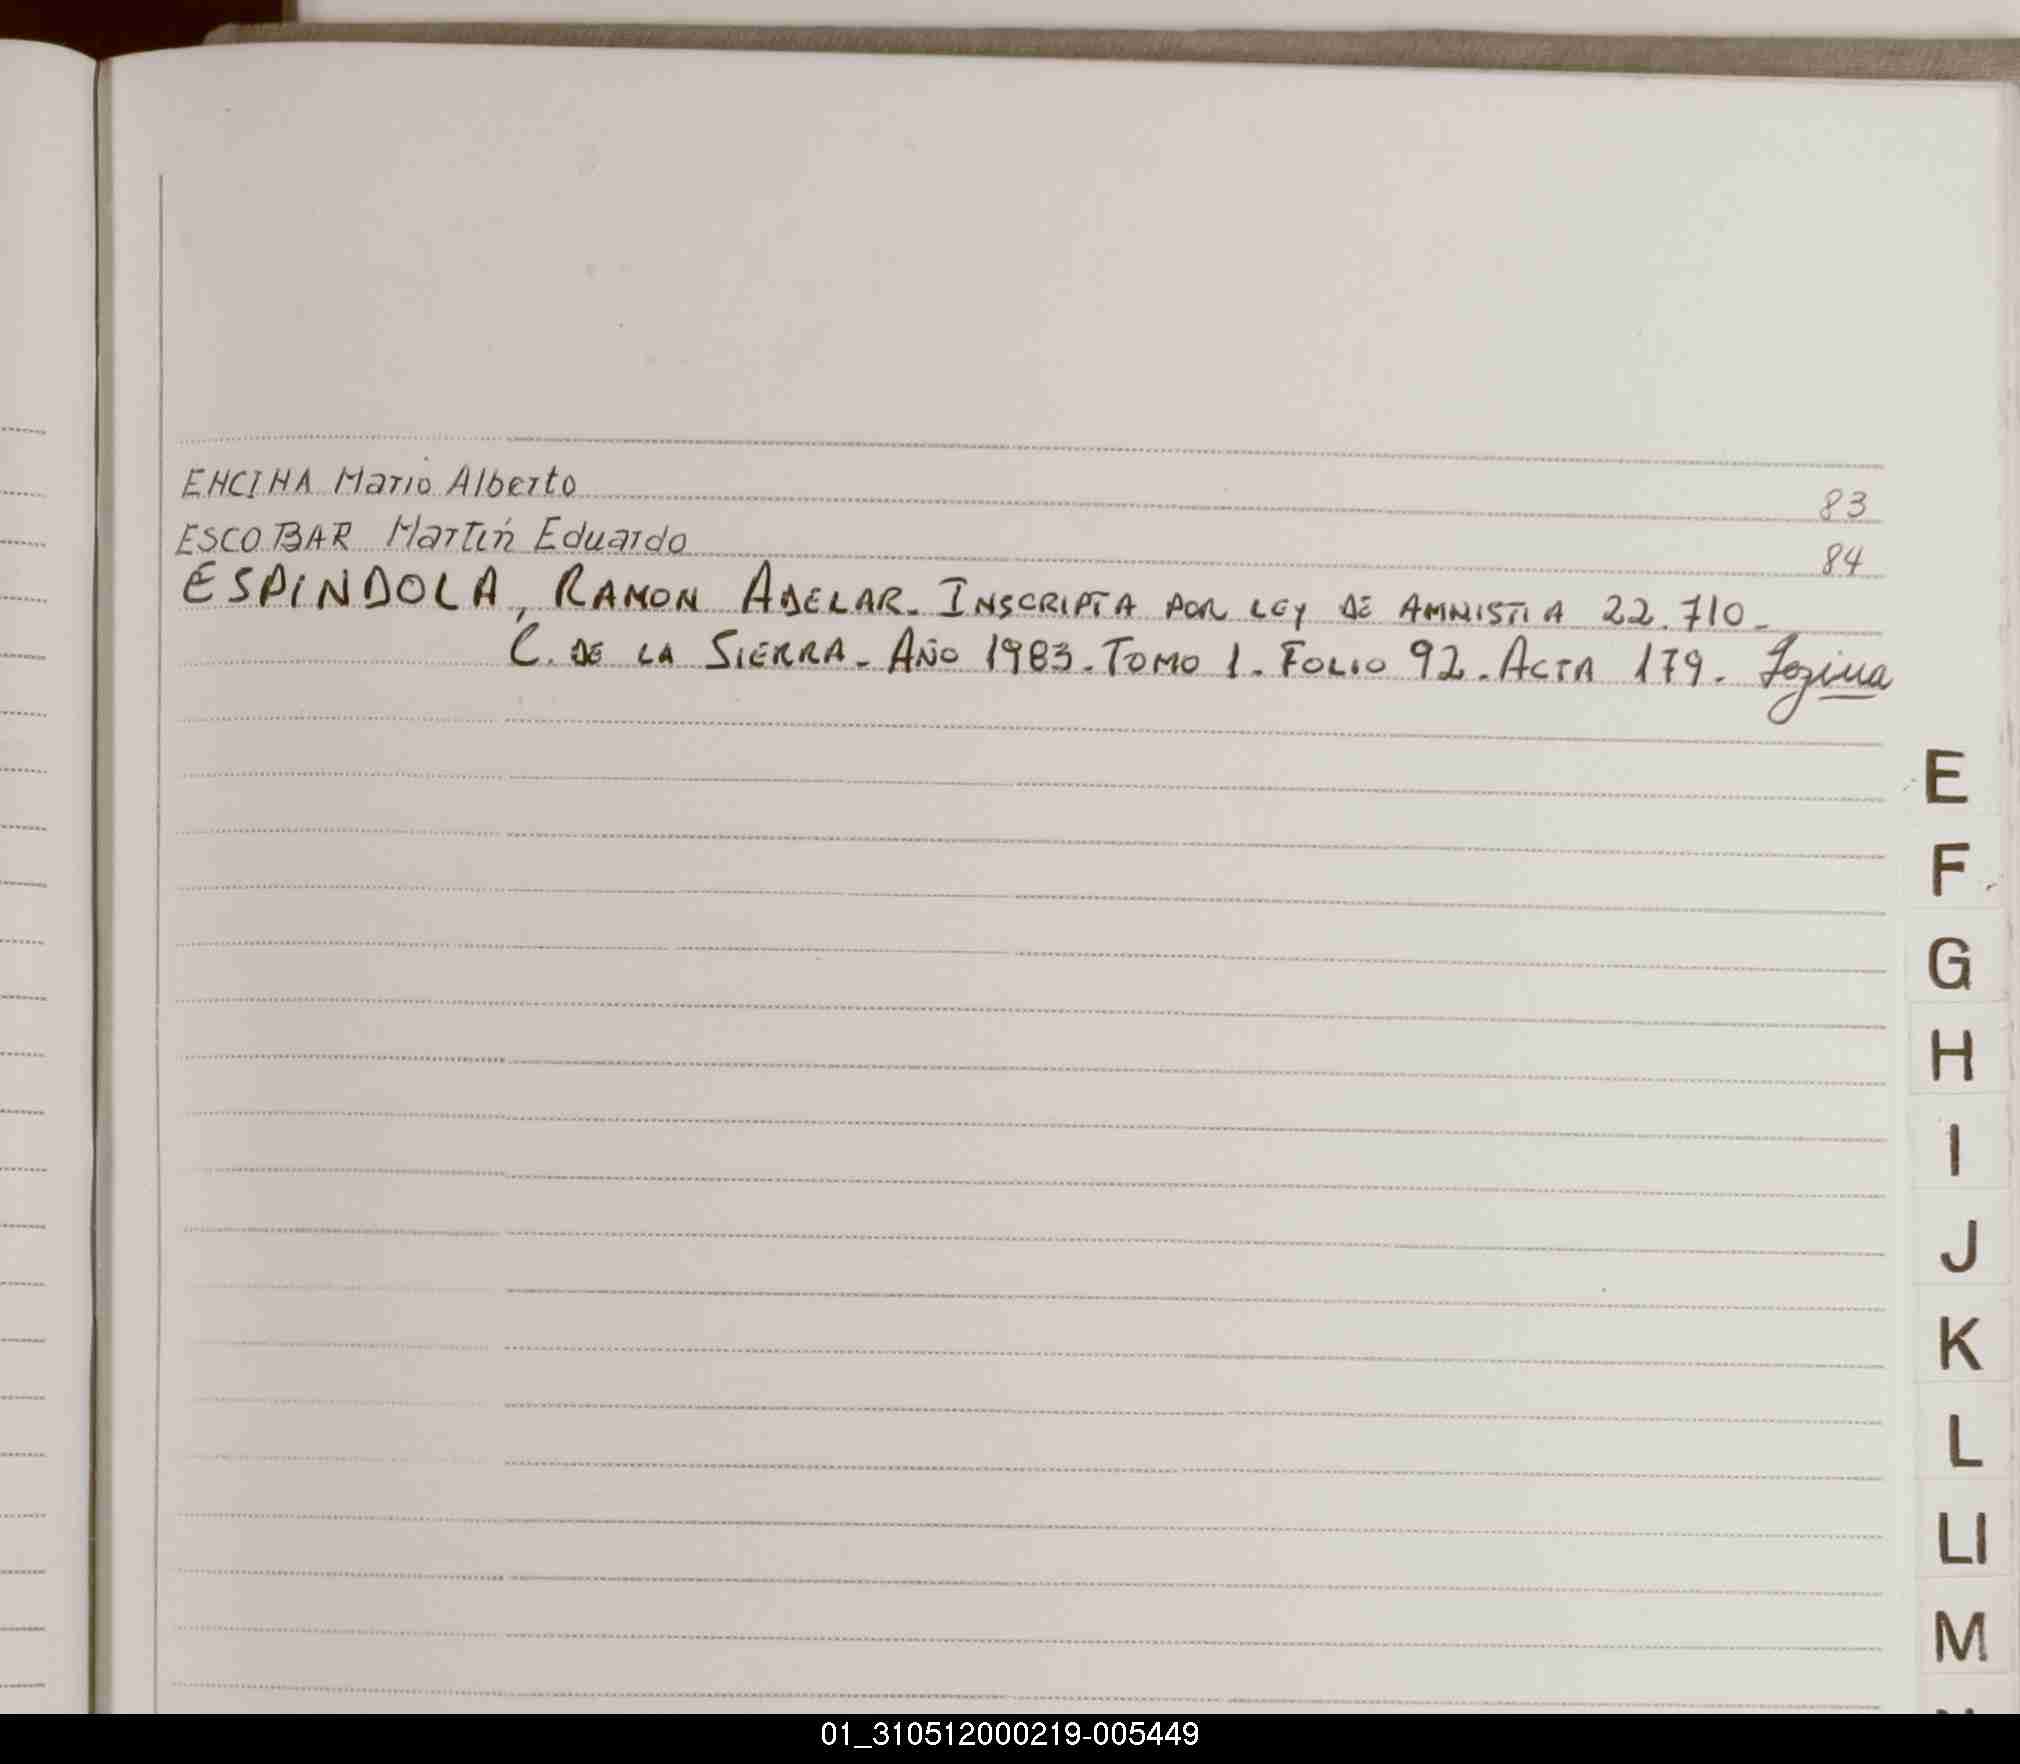 ENCINA Mario Alberto 83
ESCOBAR Martín Eduardo 84
ESPINDOLA, RAMON ADELAR. INSCRIPTA POR LEY DE AMNISTIA 22.710-
C. DE LA SIERRA. AÑO 1983. TOMO 1. FOLIO 92. ACTA 179.
E
F
G
H
I
J
K
L
Ll
M
01_310512000219-005449